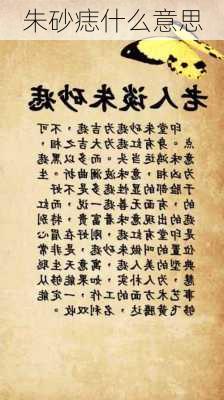 朱砂痣什么意思
老人谈朱砂痣
印堂朱砂痣为吉痣，不可
点。身有红痣为大吉之相，
意味鸿运当头。而多以黑痣
为凶相，意味波澜曲折。生
于脸部的显性痣多是不好
的，有面无善痣一说，而红
痣的出现意味着富贵，特别
是印堂有红痣，刚好在眉心
位置的叫做朱砂痣，是非常
典型的美人痣，寓意天生聪
慧，为人朴实，如果能够从
事艺术方面的工作，一定能
够飞黄腾达，名利双收。